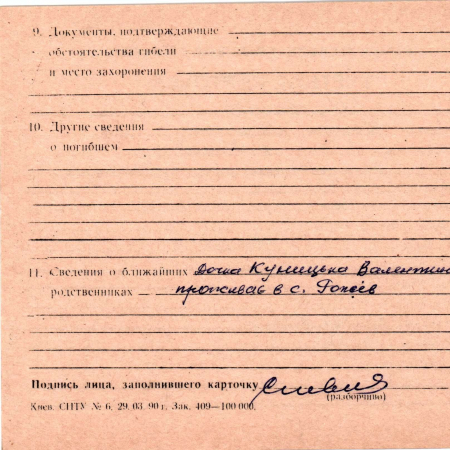 9. Документы, подтверждающие
обстоятельства гибели
и место захоронения
10. Другие сведения
о погибшем
11. Сведения о ближайших Дочка Куницька Валентин
родственниках проживає в с.
Подпись лица, заполнившего карточку
(разборчиво)
Киев. СПТУ № 6. 29. 03. 90 г. Зак. 409—100 000.